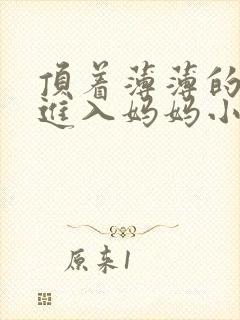 頂着薄薄的
進入妈妈小
原来1